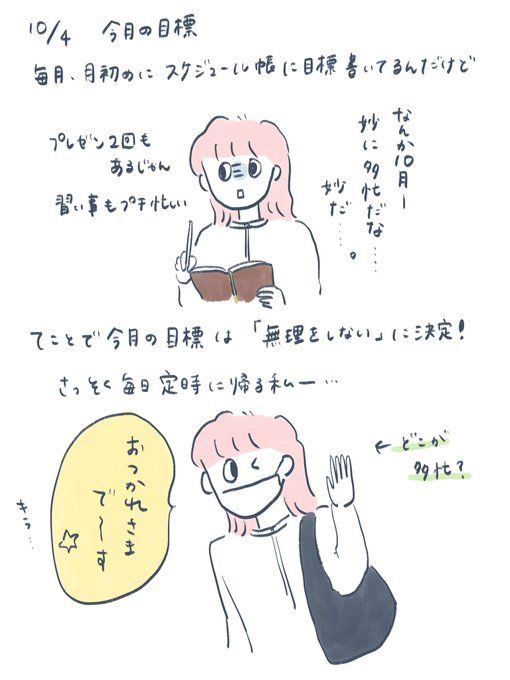 10/4 今月の目標
毎月、月初めに スケジュール帳に目標書いてるんだけど
なんか10月ー
妙に多忙だな……
妙だ……。
プレゼン2回も
あるじゃん
習い事もプチ忙しい
てことで今月の目標は「無理をしない」に決定!
さっそく毎日定時に帰る私ー…
←どこが
多忙?
おつかれさま
で〜す
キラ…